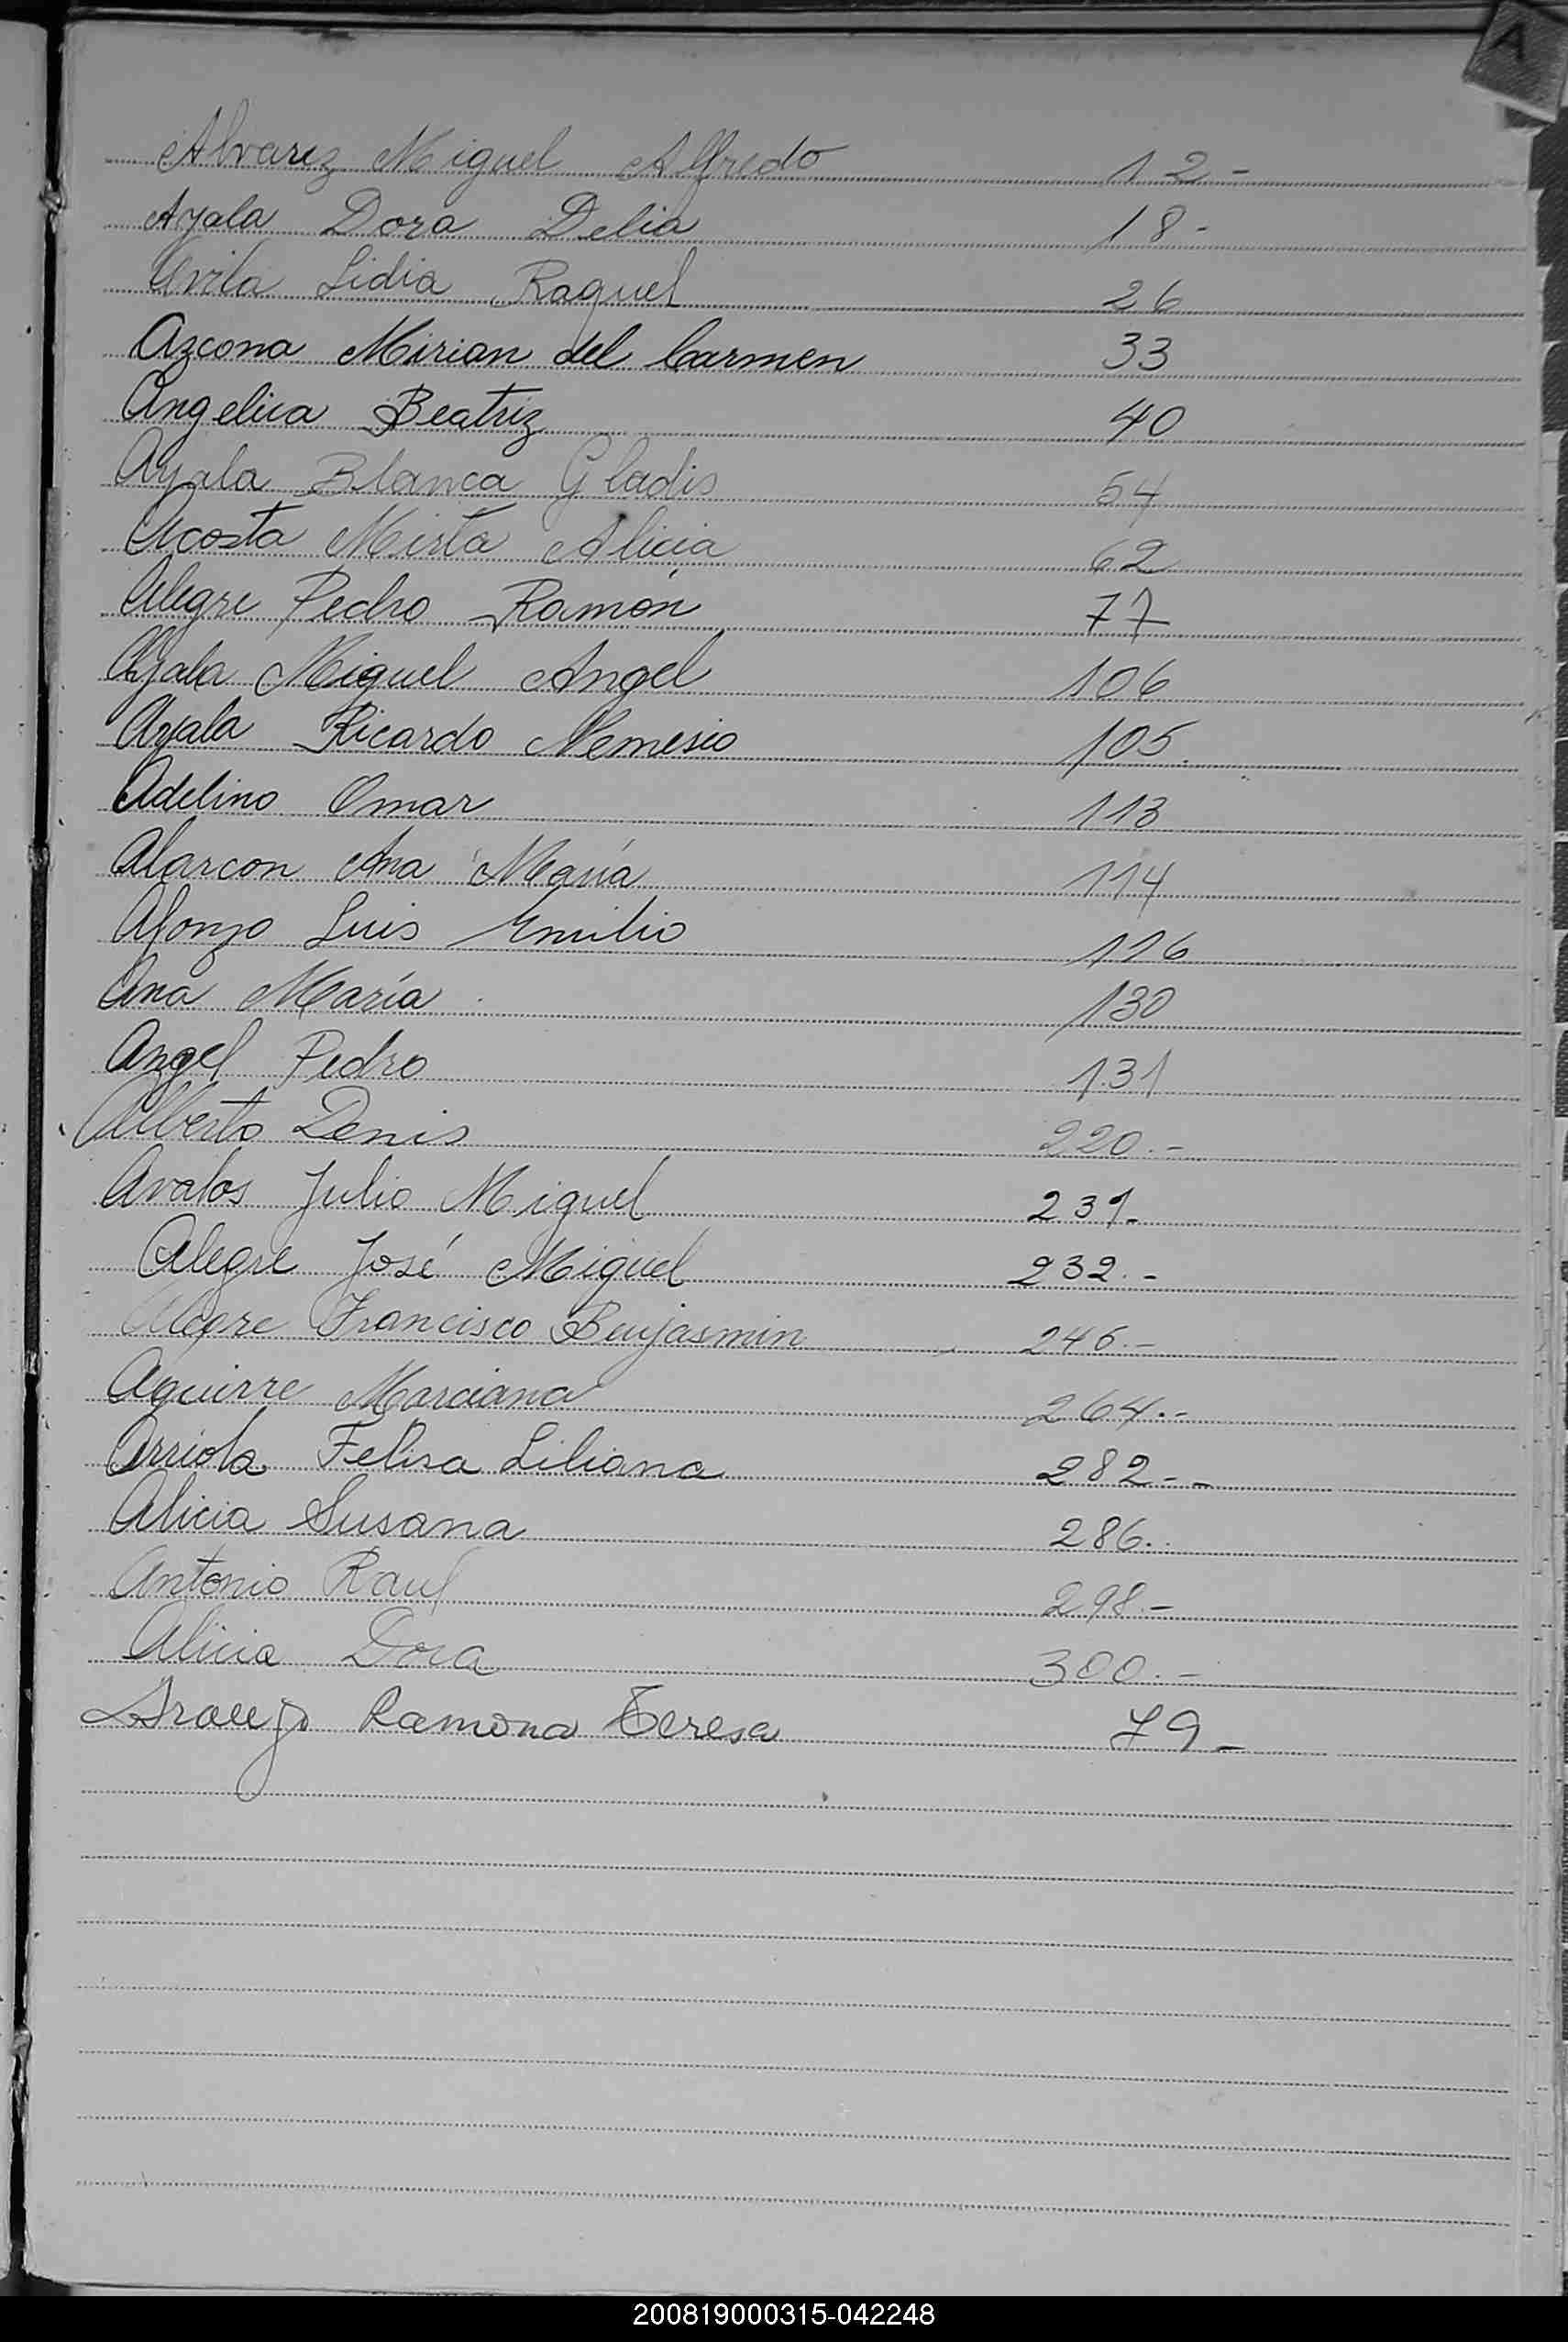 A
Alvarez Miguel Alfredo 12-
Ayala Dora Delia 18-
Avila Lidia Raquel 26
Azcona Mirian del Carmen 33
Angelica Beatriz 40
Ayala Blanca Gladis 54
Acosta Mirta Alicia 62
Alegre Pedro Ramón 77
Ayala Miguel Angel 106
Ayala Ricardo Nemesio 105.
Adelino Omar 113
Alarcon Ana María 114
Afonzo Luis Emilio 116
Ana María 130
Angel Pedro 131
Alberto Denis 220.-
Avalos Julio Miguel 231-
Alegre José Miguel 232.-
Alegre Francisco Benjasmin 246.-
Aguirre Marciana 264.-
Arriola Felisa Liliana 282--
Alicia Susana 286..
Antonio Raul 298.-
Alicia Dora 300.-
Araujo Ramona Teresa 79-
200819000315-042248